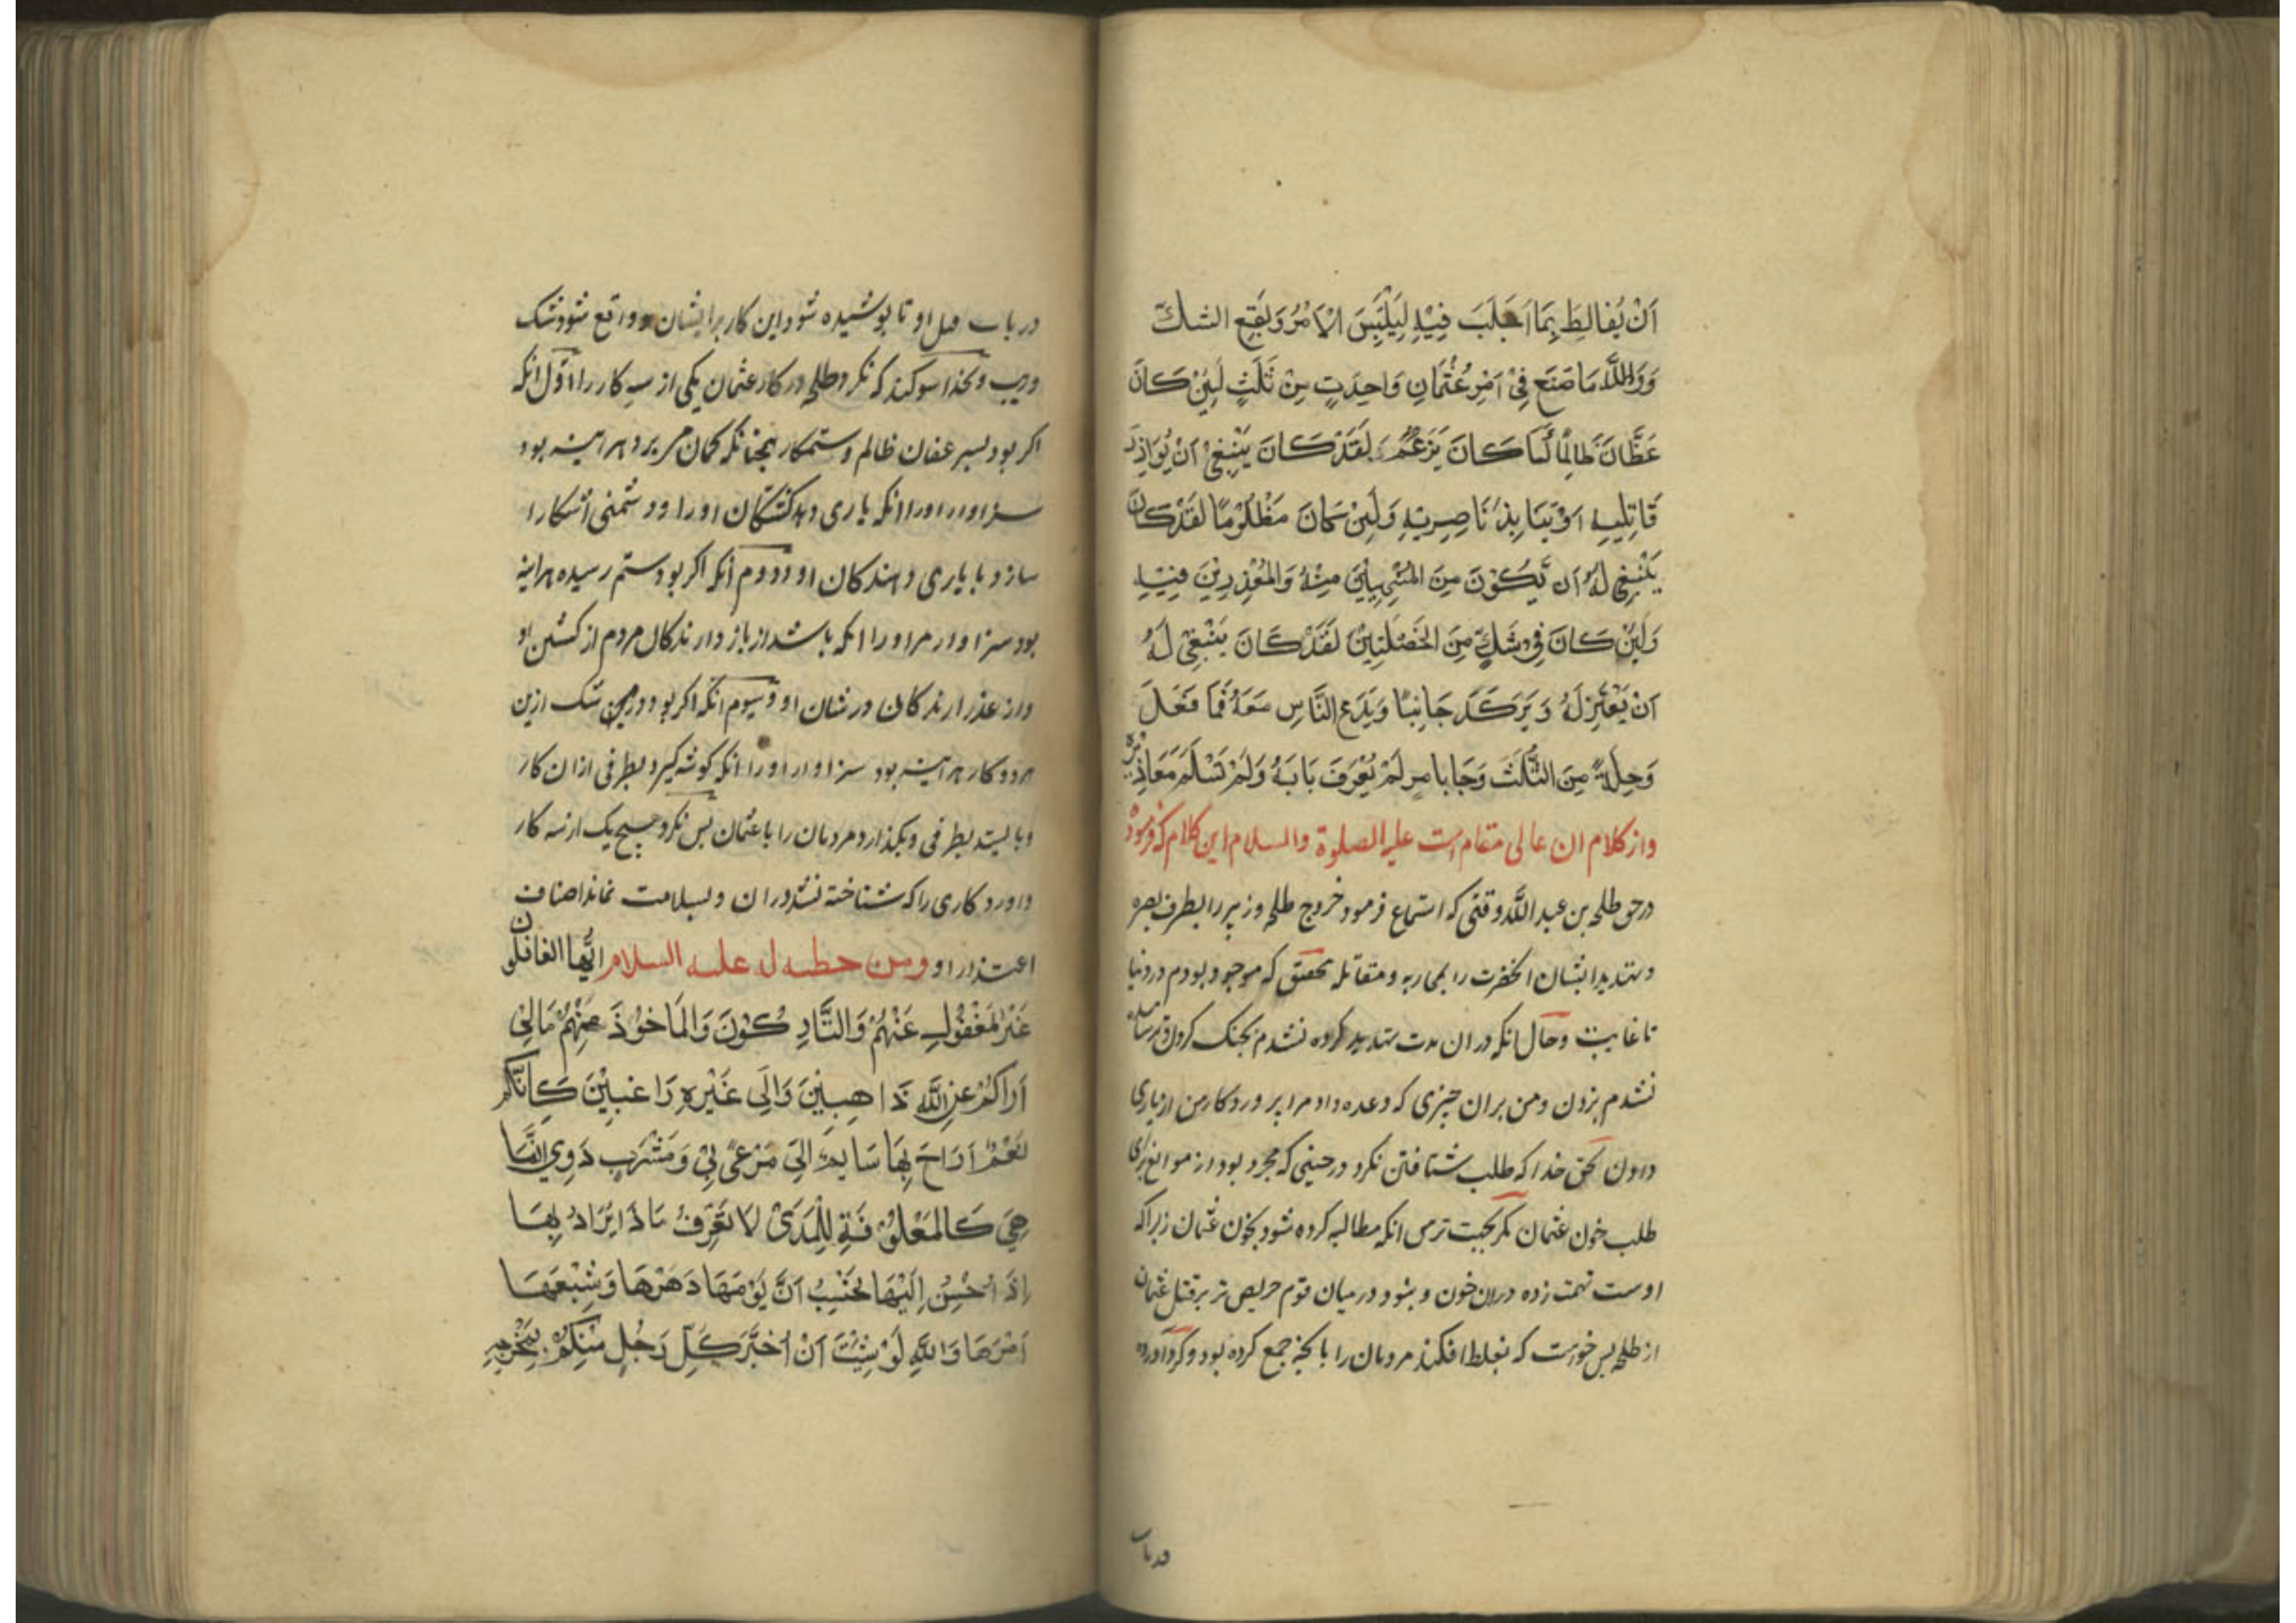 اَنْ يُغالِطَ بِمَا اَجْلَبَ فِيْهِ لِيَلْتَبِسَ الْاَمْرُ وَيَقَعَ الشكّ
وَوَاللَّهِ مَا صَنَعَ فِيْ اَمْرِ عُثْمَانَ وَاحِدَتٍ مِنْ ثَلَثٍ لَئِنْ كَانَ
عَفَّانَ ظَالِمًا كَمَا كَانَ يَزْعُمُ لَقَدْ كَانَ يَنْبِغِيْ اَنْ يُوَازِرَ
قَاتِلِيهِ اَوْ يُنَا بِذَ نَاصِرِيْهِ وَلَئِنْ كَانَ مَظْلُوْمًا لَقَدْ كَانَ
يَنْبَغِي لَهُ اَن يَّكُوْنَ مِنَ الْمُنَهْنِهِيْنَ عَنْهُ وَالْمُعْذِرِيْنَ فِيْهِ
وَلَئِنْ كَانَ فِي شَكٍّ مِنَ الْخَصْلَتَيْنِ لَقَدْ كَانَ يَنْبَغِيْ لَهُ
اَنْ يَعْتَزِلَهُ وَ يَرْكَدَ جَانِبًا وَيَدَعَ النَّاسِ مَعَهُ فَمَا فَعَلَ
وَحِدَةً مِنَ الثَّلَثَ وَجَا بامرٍ لَمْ يُعْرَفَ بَابَهُ وَلَمْ تَسْلَمْ مَعَاذِيْرُه
واز کلام ان عالی مقام است علیه الصلوة والسلام این کلام که فرموده
درحق طلحه بن عبد اللّه وقتی که استماع فرمود خروج طلحه وزبیر را بطرف بصره
وتهدید ایشان انحضرت را بمحاربه ومقاتله بتحقیق که موجود بودم در دنیا
تا غایت وحال انکه دران مدت تهدید کرده نشدم بجنک کردن وترسانیده
نشدم بزدن ومن بران چیزی که وعده داد مرا پروردکار من ازیاری
دادن بحق خدا که طلب شتافتن نکرد درحینی که مجرد بود از موانع برای
طلب خون عثمان مکر بجهت ترس انکه مطالبه کرده شود بخون عثمان زیراکه
اوست تهمت زده دران خون و نبود درمیان قوم حریص تر بر قتل عثمان
از طلحه پس خواست که بغلط افکند مردمان را با نچه جمع کرده بود وکرد آورده
در باب
در باب قتل او تا پوشیده شود این کار برایشان و واقع شود شک
وریب وبخدا سوکند که نکرد طلحه در کار عثمان یکی از سه کار را اوّل انکه
اکر بود پسر عفان ظالم وستمکار همچنانکه کمان می برد هر اینه بود
سزاوار اورا انکه یاری دهد کشندکان اورا ود شمنی اشکارا
سازد با یاری دهندکان او ودوم انکه اکر بود ستم رسیده هراینه
بود سزا وار مر اورا انکه باشد از باز دارندکان مردم از کشتن او
واز عذر ارندکان در شان او وسیوم انکه اکر بود در شک ازین
هردو کار هر اینه بود سزاوار اورا انکه کوشه کیرد بطرفی ازان کار
وبا یستد بطرفی وبکذارد مردمان را با عثمان پس نکرد هیچ یک ازسه کار
واورد کاری را که شناخته نشد دران وبسلامت نماند اصناف
اعتذار او ومن خطبه له علیه السلام ایُّها الغافلون
غَيْرِ الْمَغْفُوْلِ عَنْهُمْ وَالتَّارِ كُوْنَ وَالْمَاخُوْذَ مِنْهُمْ مَا لِيْ
اَرَاكُمْ عَنِ اللَّهِ ذَا هِبِيْنَ وَاِلَى غَيْرِهِ رَا غِبِيْنَ كَاَنَّكُمْ
نَعَمٌ اَرَاحَ بِهَا سَايِمٌ اِلىَ مَرْعىً بِيٍ وَمَشْرَبٍ دَوِيٍ اِنَّمَا
هِيَ كَالْمَعْلُوْ فَةِ لِلْمُدَىْ لَا تَعْرِفُ مَا ذَا يُرَادُ بِهَا
اِذَا اُحْسِنَ اِلَيْهَا تَحْسِبُ اَنَّ يَوْمَهَا دَهْرَهَا وَشِبْعَهَا
اَمْرَهَا وَاللَّهِ لَوْ شِئْتَ اَنْ اُخْبِرَ كَلَّ رَجُلٍ مِنْكُمْ بِمَخْرَجِهِ